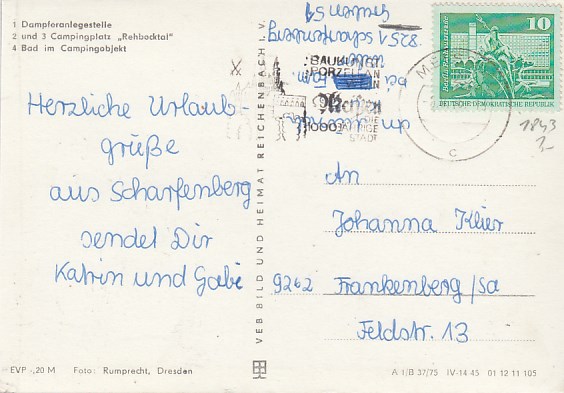 1 Dampferanlegestelle
2 und 3 Campingplatz „Rehbocktal"
4 Bad im Campingobjekt
Herzliche Urlaub-
grüße
aus Scharfenberg
sendet Dir
Katrin und Gabi
EVP -,20 M Foto: Rumprecht, Dresden
VEB BILD UND HEIMAT REICHENBACH I. V.
8251 Scharfenberg
bei
BAUKUNST
PORZELLAN
WEIN
Meißen
DIE
1000 JÄHRIGE
STADT
10
DEUTSCHE DEMOKRATISCHE REPUBLIK
c
1843
1,-
An
Johanna Klier
9262 Frankenberg/Sa
Feldstr. 13
A 1/B 37/75 IV-14-45 01 12 11 105